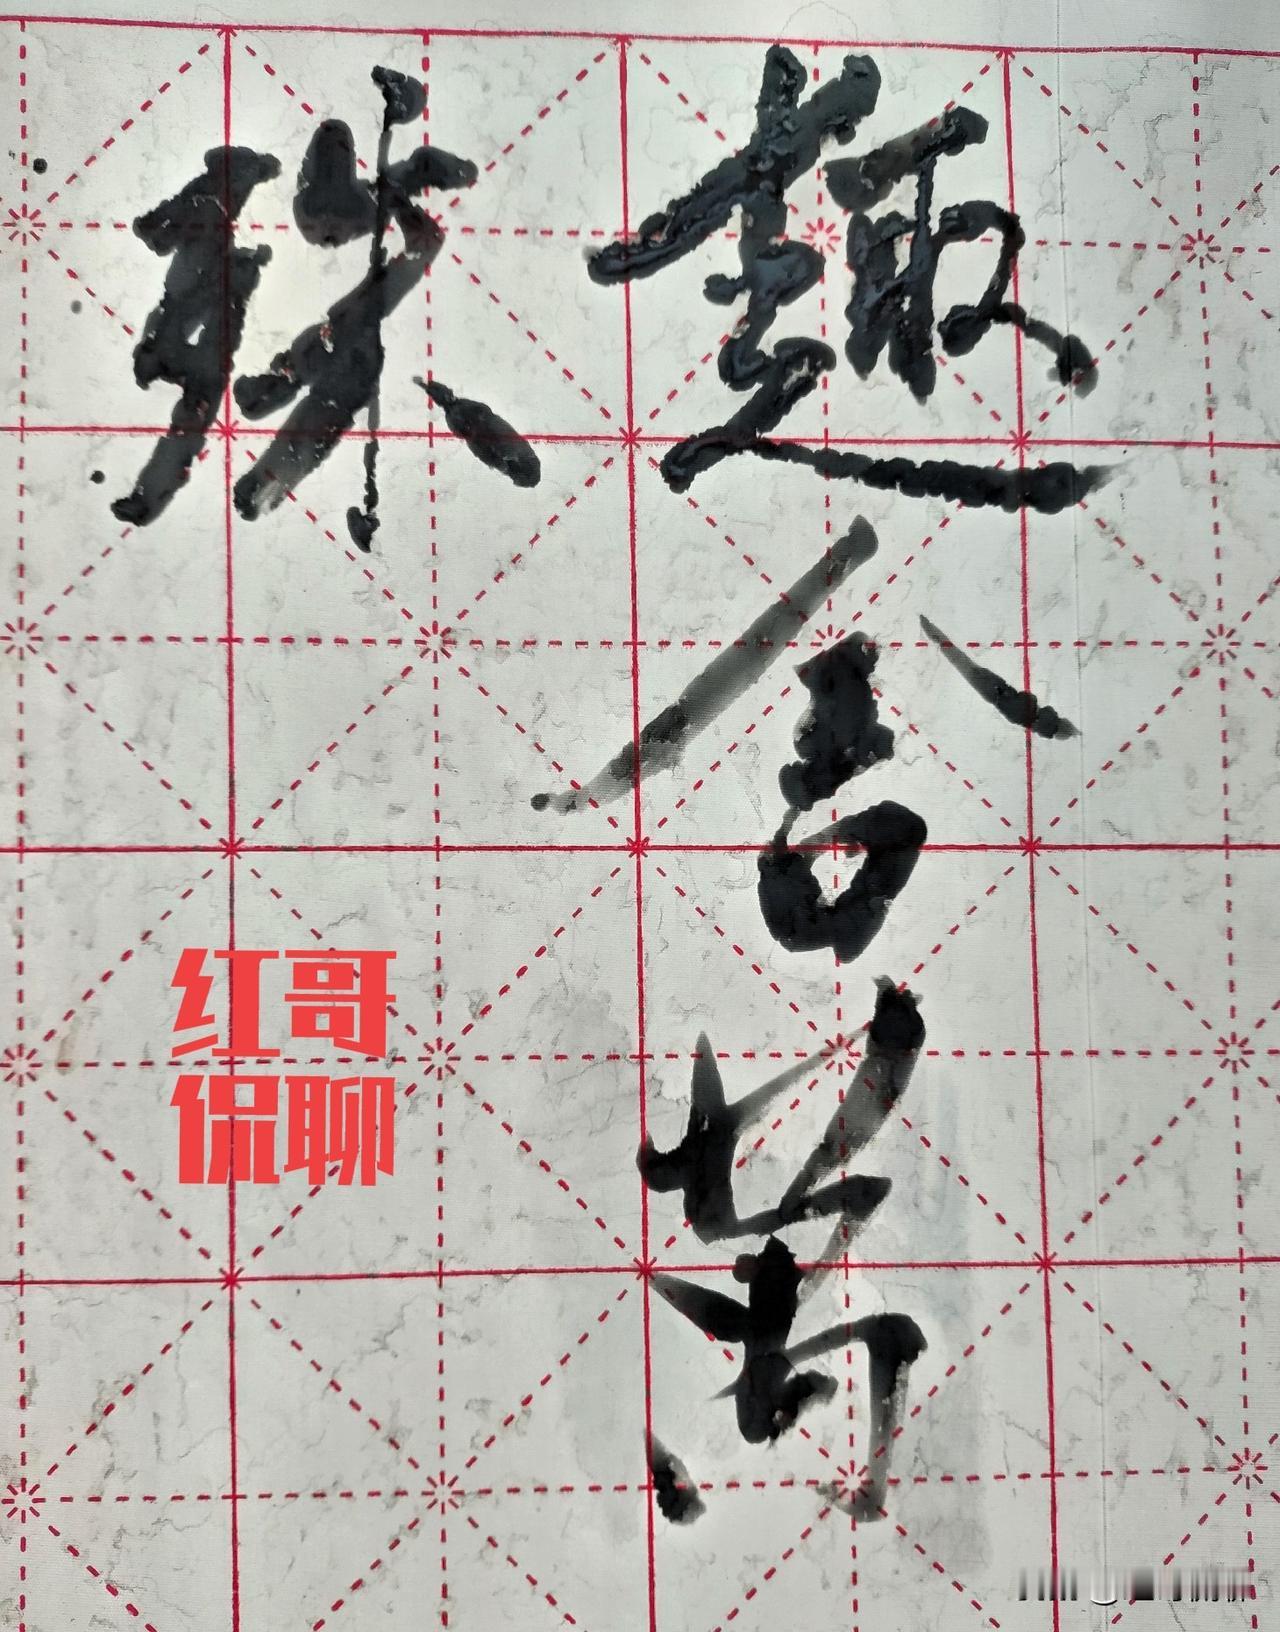 趣舍萬
殊
红哥
侃聊